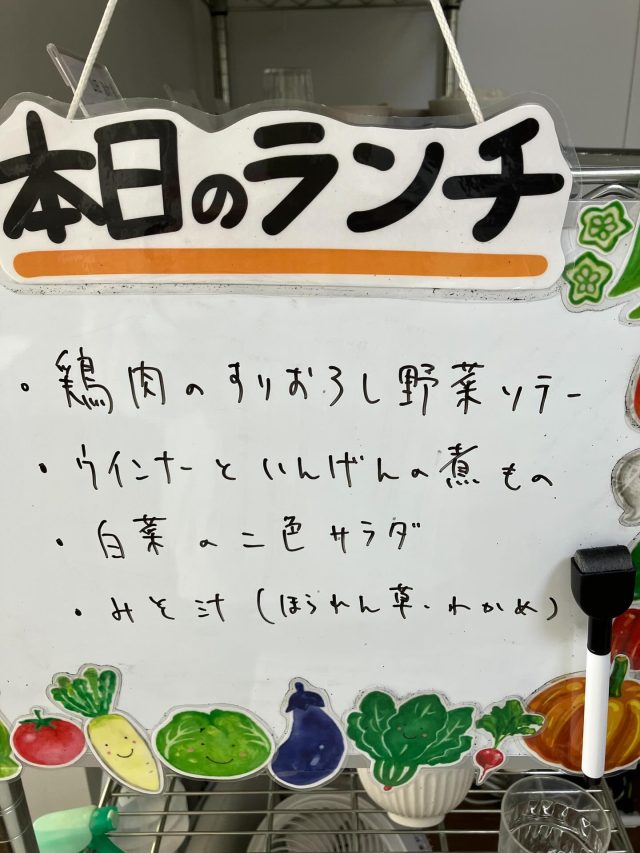 本日のランチ
・鶏肉のすりおろし野菜ソテー
・ウインナーといんげんの煮もの
・白菜の二色サラダ
・みそ汁(ほうれん草・わかめ)